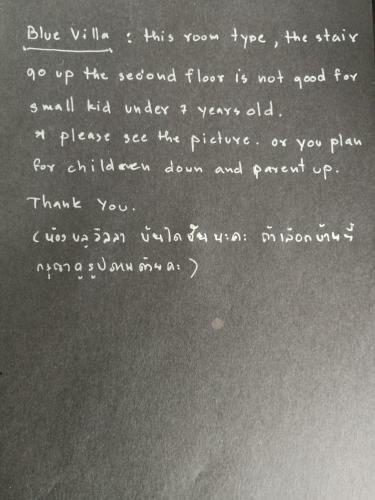 Blue Villa : this room type, the stair
go up the second floor is not good for
small kid under 7 years old.
* please see the picture. or you plan
for children down and parent up.
Thank You.
(ห้อง บลูวิลลา บันไดชัน นะคะ ถ้าเลือกบ้านนี้
กรุณาดูรูปตามด้านคะ)